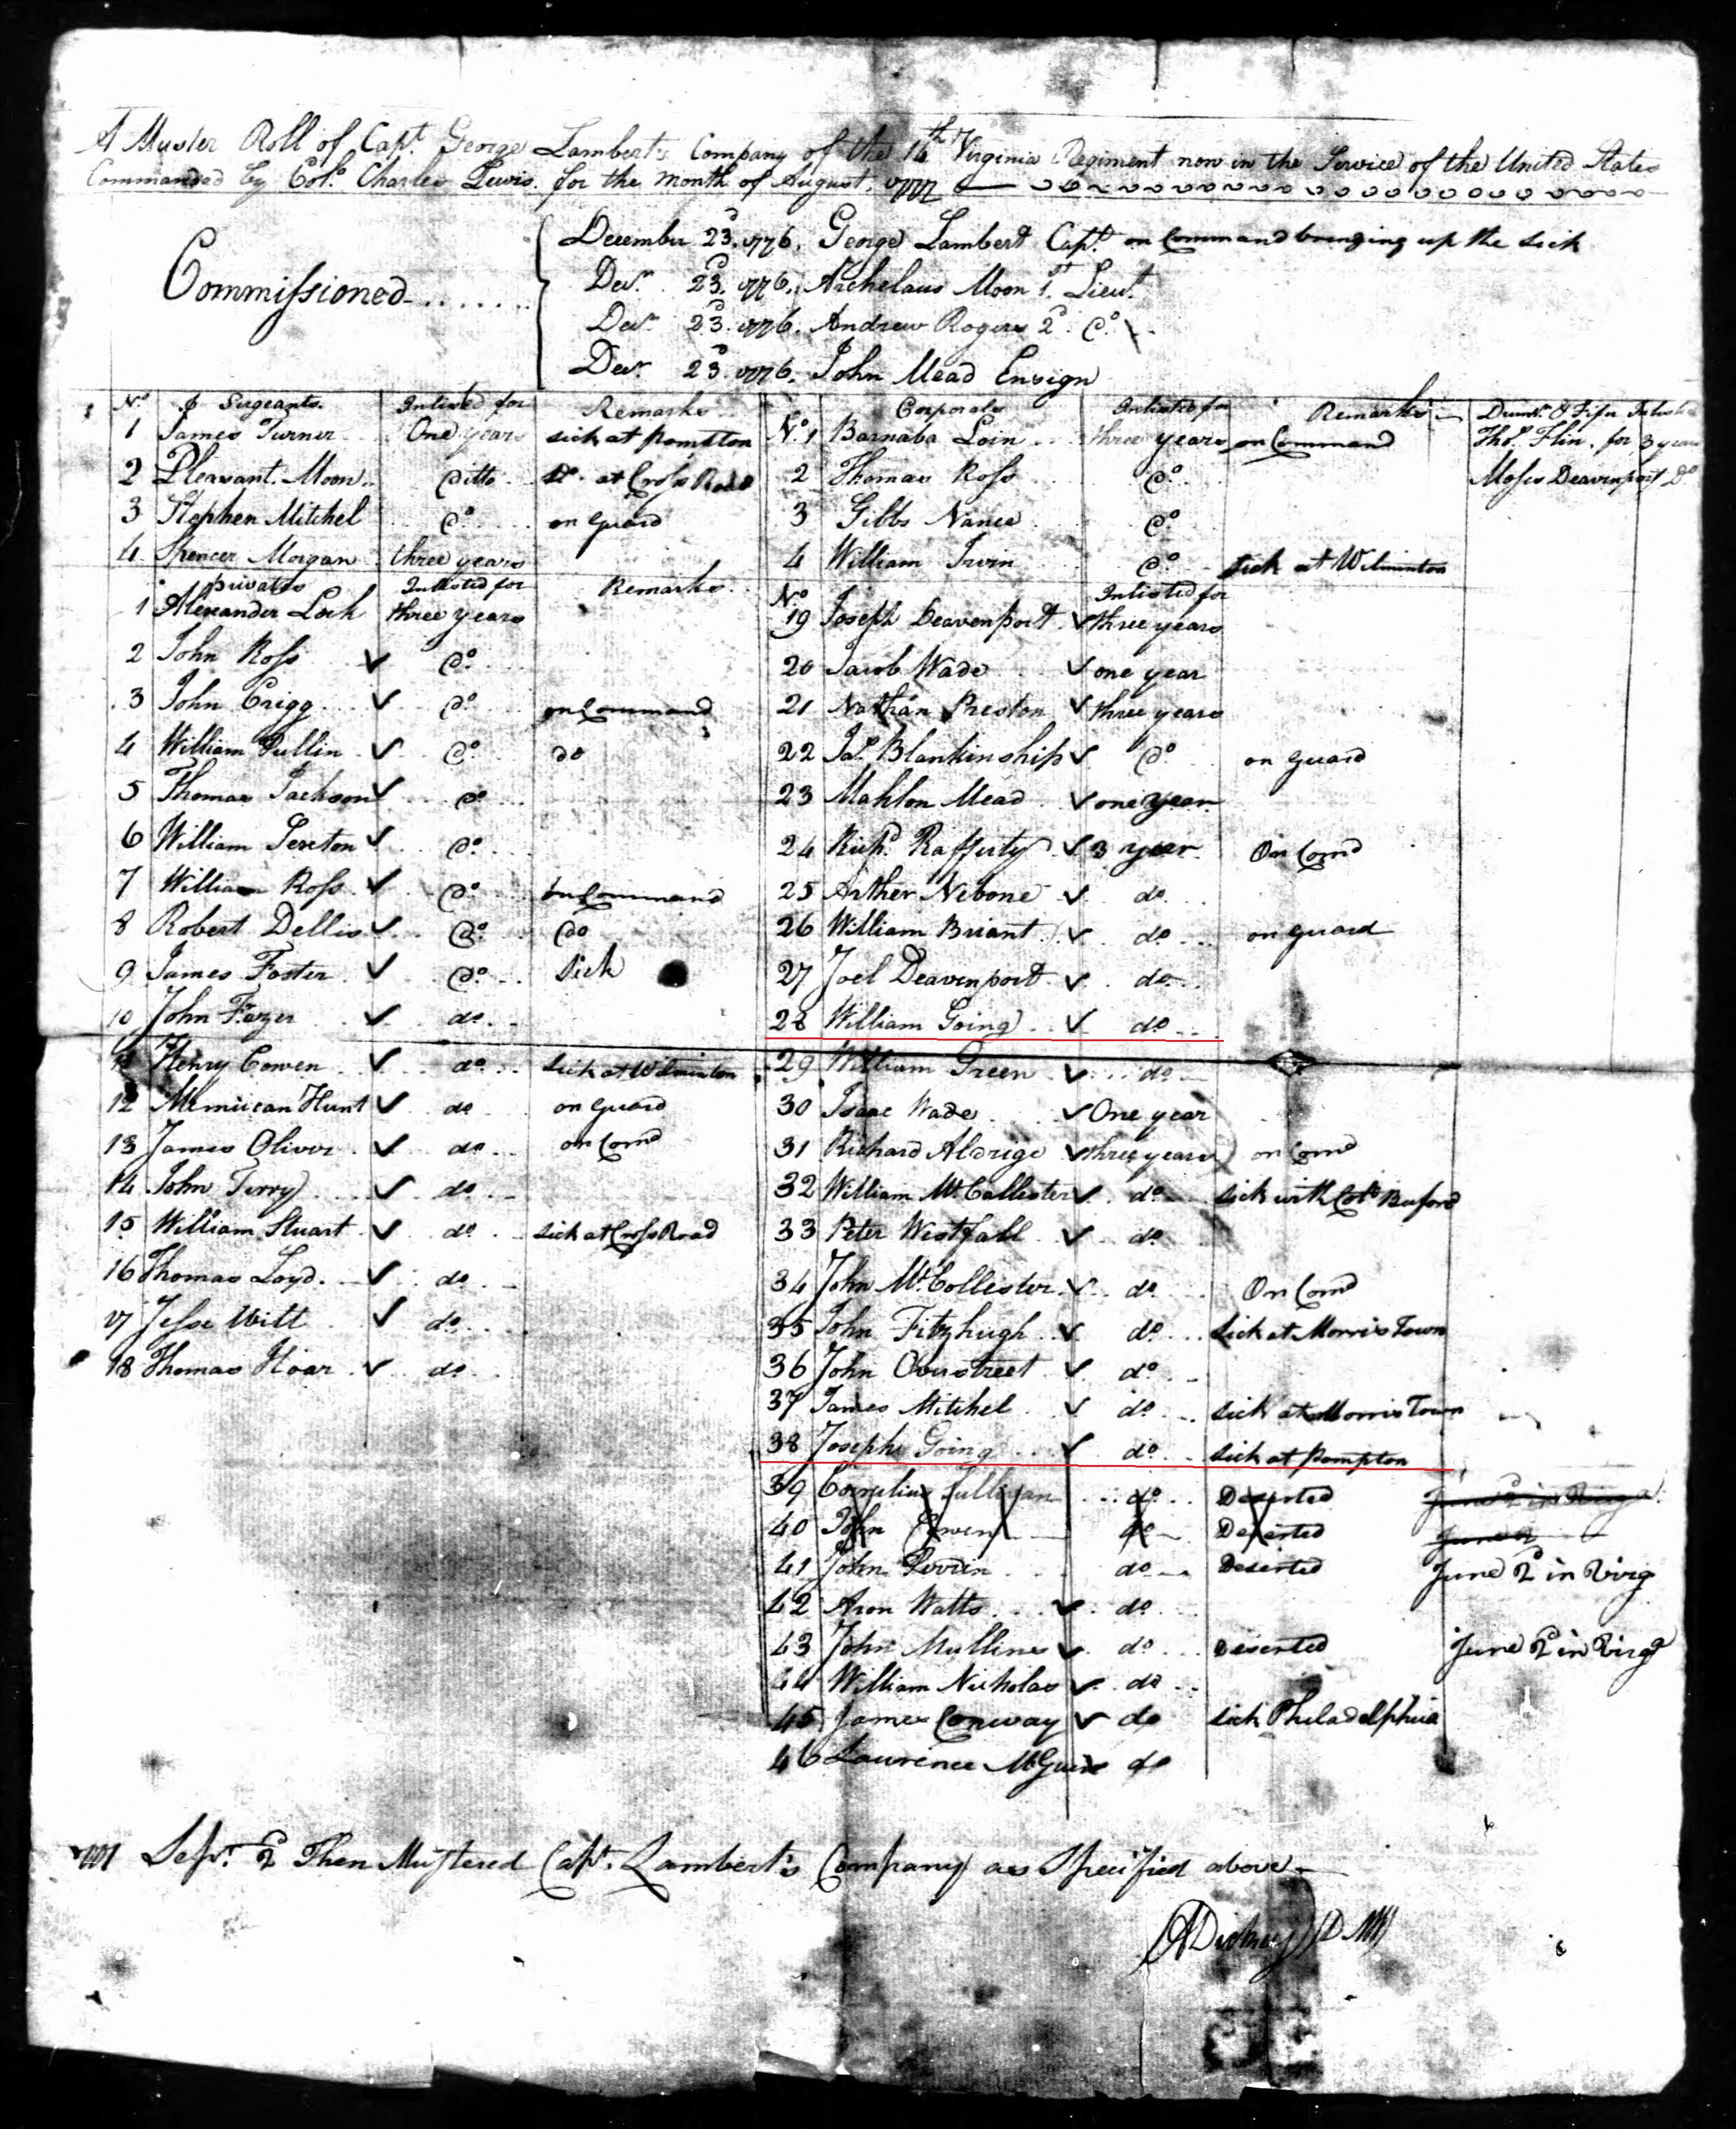 A Muster Roll of Capt George Lambert's Company of the 14th Virginia Regiment now in the Service of the United States
Commanded by Colo. Charles Lewis. for the month of August. 1777
Commissioned
December 23d. 1776. George Lambert Capt. on Command bringing up the sick
Decr. 23d. 1776. Archelaus Moon 1st. Lieut.
Decr. 23d. 1776. Andrew Rogers 2d. Do.
Decr. 23d. 1776. John Mead Ensign
No. Sergeants. Inlisted for Remarks
1 James Turner One years sick at pompton
2 Pleasant Moon ditto Do. at Cross Road
3 Stephen Mitchel Do on Guard
4 Spencer Morgan three years
privates Inlisted for Remarks
1 Alexander Lock three years
2 John Ross Do
3 John Grigg Do on Command
4 William Pullin Do do
5 Thomas Jackson Do
6 William Sexton Do
7 William Ross Do on Command
8 Robert Dellis Do do
9 James Foster Do Sick
10 John Frazer do
11 Henry Cowen do sick at Wilminton
12 Hunt do on Guard
13 James Oliver do on Comd
14 John Terry do
15 William Stuart do sick at Cross Road
16 Thomas Loyd do
17 Jesse Witt do
18 Thomas Hoar do
Corporals Inlisted for Remarks
No. 1 Barnaba Loin three years on Command
2 Thomas Ross Do
3 Gibbs Nance Do
4 William Irvin Do sick at Wilminton
No Inlisted for
19 Joseph Deavenport three years
20 Jacob Wade one year
21 Nathan Preston three years
22 Jas. Blankinship Do on Guard
23 Mahlon Mead one year
24 Richd. Rafferty 3 year On Comd
25 Arther Nebone do
26 William Briant do on Guard
27 Joel Deavenport do
28 William Going do
29 William Green do
30 Isaac Wade One year
31 Richard Aldrige three years on Comd
32 William McCallester do sick with Colo Buford
33 Peter Westfall do
34 John McCollester do On Comd
35 John Fitzhugh do sick at Morris Town
36 John Overstreet do
37 James Mitchel do sick at Morris Town
38 Joseph Going do sick at Pompton
39 Cornelius Sullivan do Deserted
40 John Cowen do Deserted
41 John do Deserted June 2d in Virg
42 Aron Watts do
43 John Mullines do Deserted June 2d in Virga
44 William Nicholas do
45 James Conway do sick Philadelphia
46 Laurence McGuire do
Drumr. & Fifer Inlisted
Thos. Flin. for 3 years
Moses Deavenport Do
Sepr. 2d Then Mustered Capt. Lambert's Company as Specified above